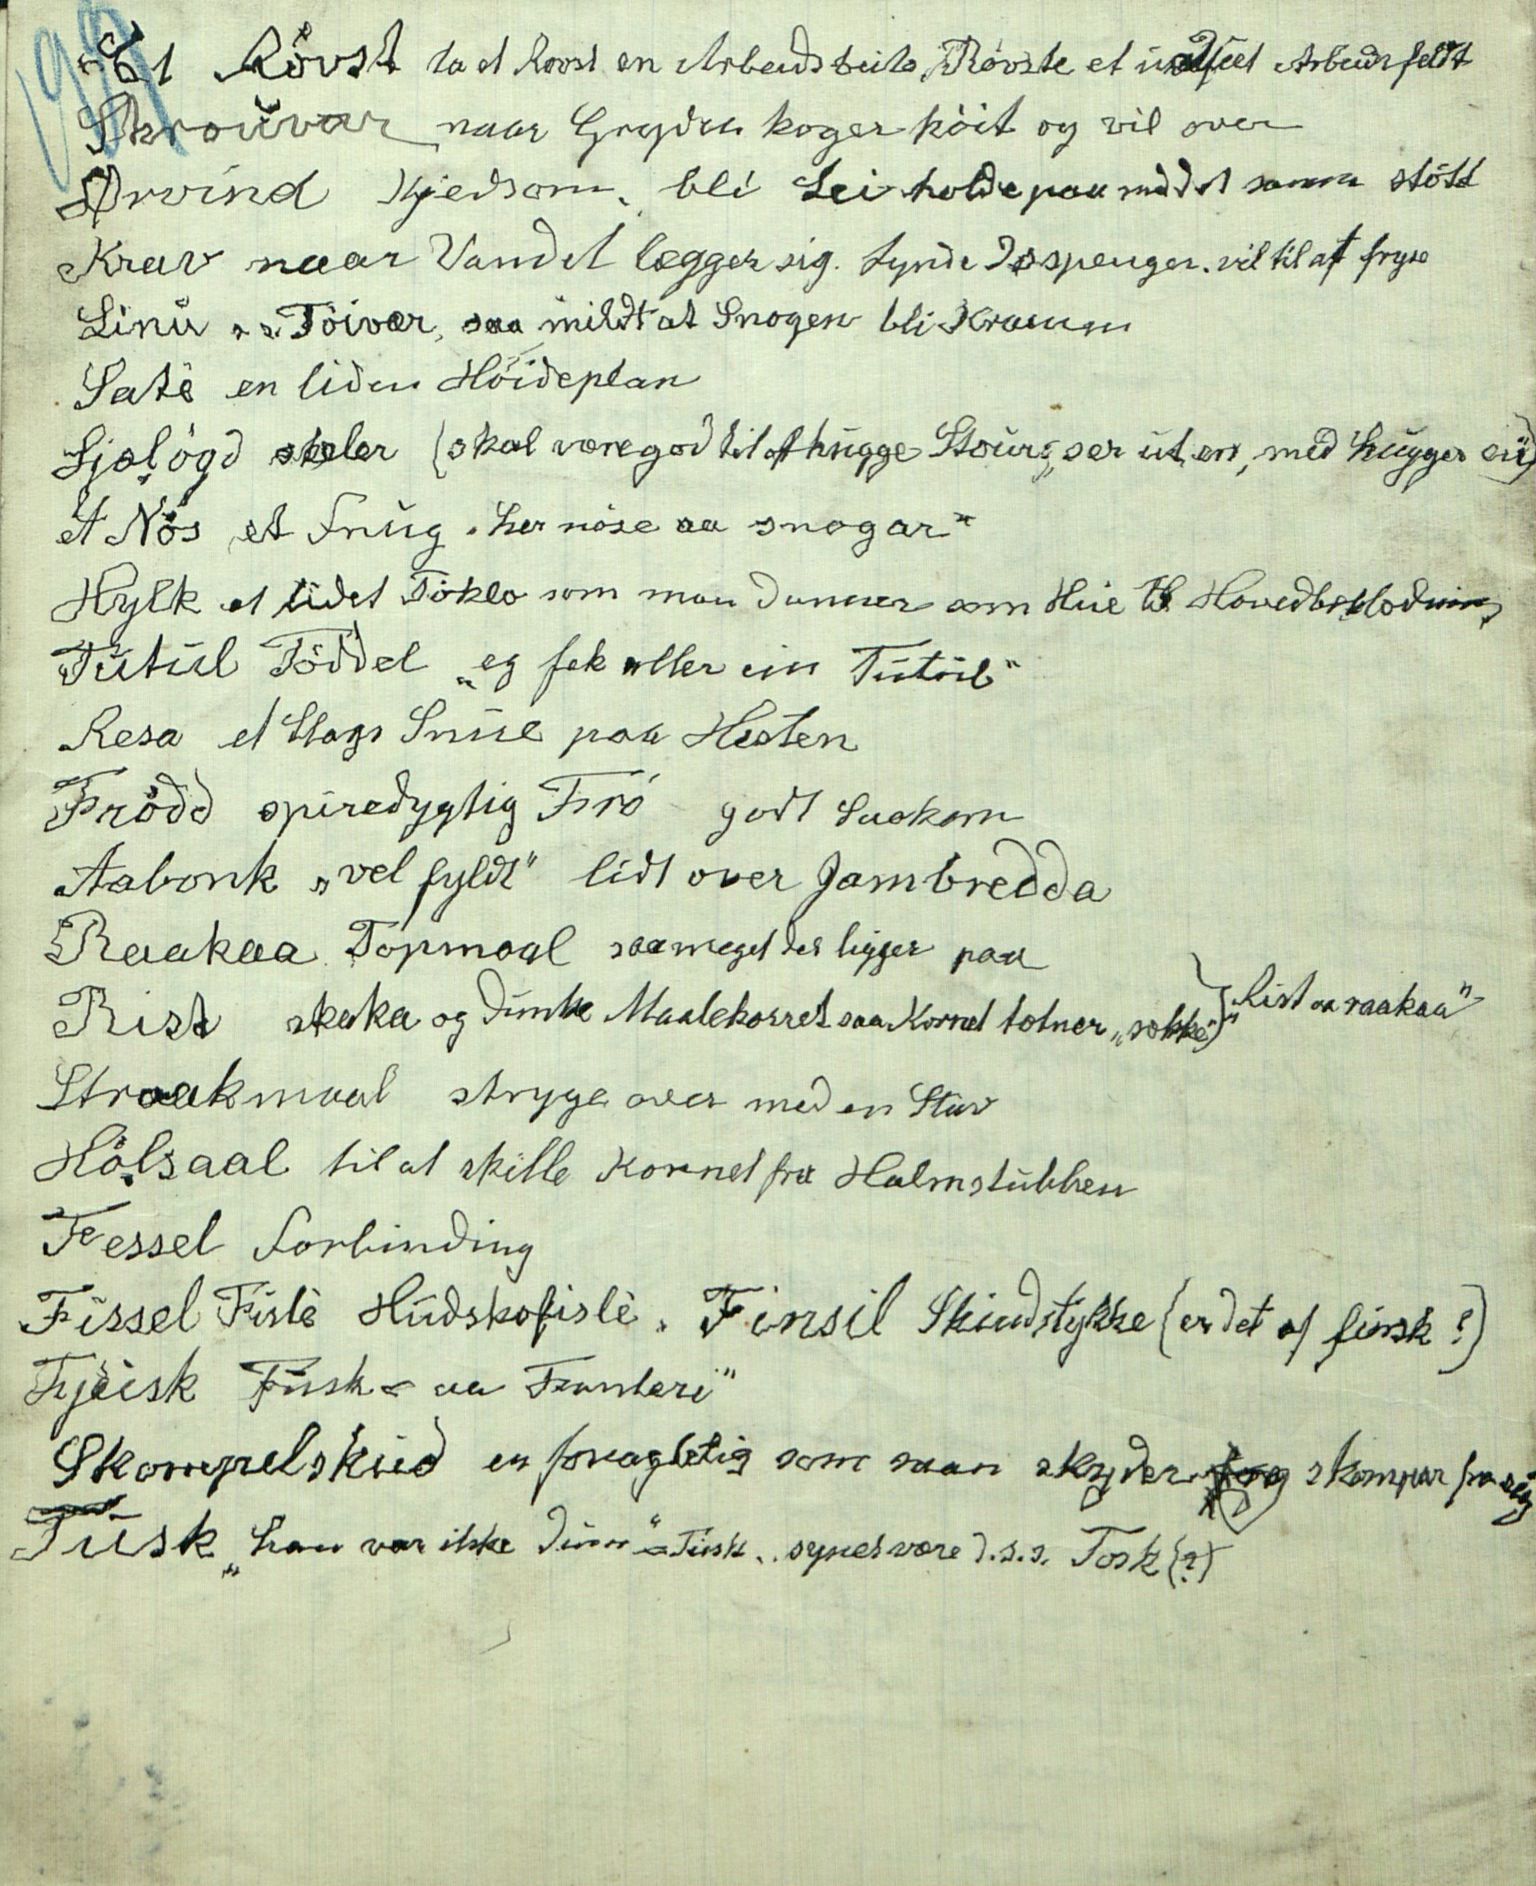 Et Rövst ta et Rovst en Arbeidsteile, Rövste et Arbeidsfeldt
Skrouvar naar Gryden koger höit og vil over
Ørvind Kjedsom, bli Lei holde paa med det samme stött
Krav naar Vandet lægger sig. tynde Isspenger. vil til at fryse
Linü „ „ Töivær, saa mildt at Snogen bli Kraum
Satè en liden Höideplan
Sjælögd skeler (skal være god til at hügge Stour „ser üt en, med hügger ein)
et Nös et Snüg „her nöse aa snogar"
Hylk et lidet Töklæ som man danner som Hüe til Hovedbeklædning
Tütül Töddel „eg fek aller ein Tütül"
Resa et Slags Snüe paa Hesten
Frödd spiredygtig Frö godt Saakorn
Aabonk „vel fyldt" lidt over Jambredda
Raakaa Topmaal saameget der ligger paa
Rist skaka og dunke Maalekorret saa Kornet totner „sokke") „Rist aa raakaa"
Straakmaal stryge over med en Stav
Hölsaal til at skille Kornet fra Halmstübben
Fessel Forbinding
Fissel Fislè Hüdskofislè. Finsil Skindstykke (er det af finsk?)
Fjeisk Füsk aa Fanteri"
Skompelsküd en foragtelig som man skyder og skompar fra sig
Tüsk „han var ikke dum" Tüsk.. synes være d.s.s. Tosk (?)